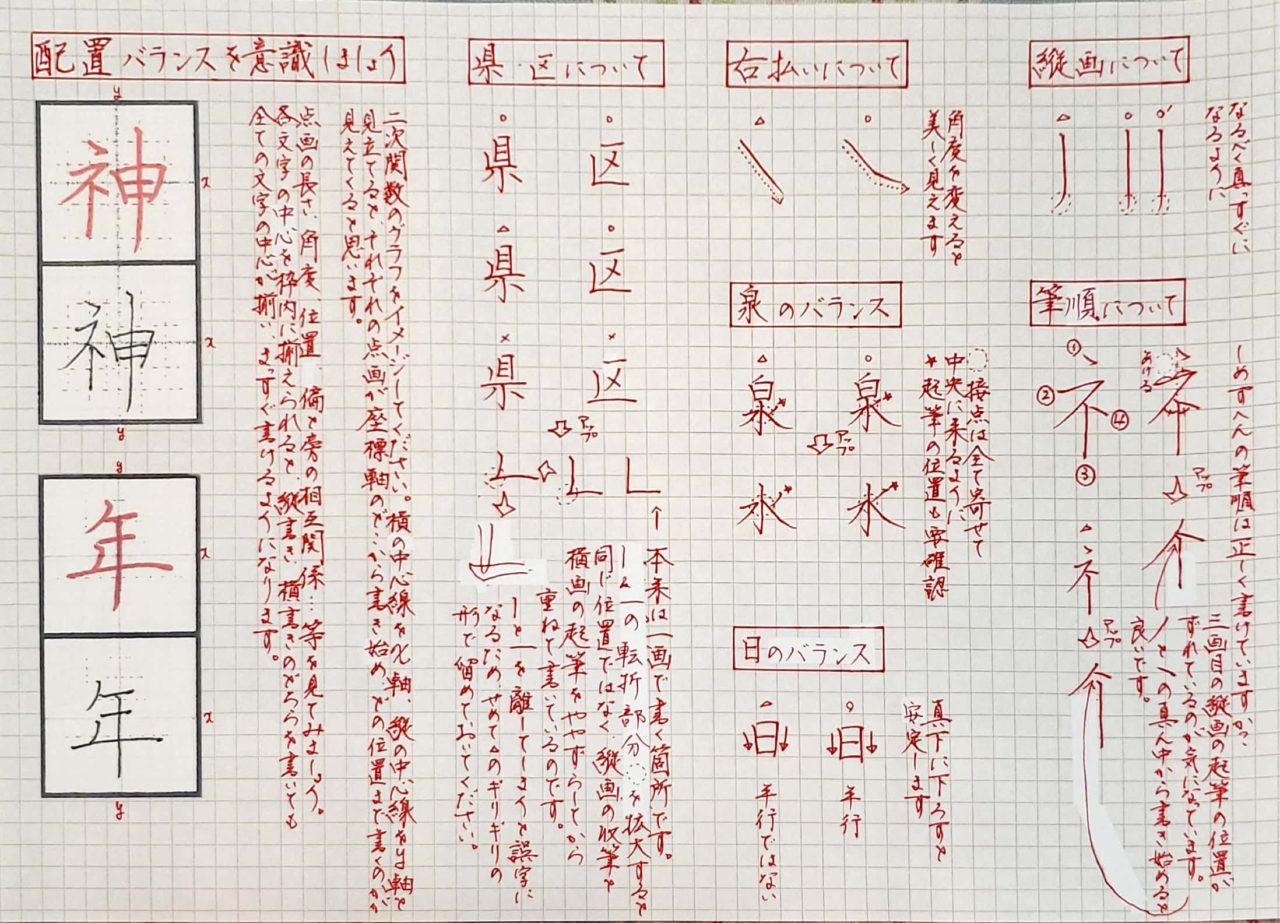 縦画について
なるべく真っすぐに
なるように
△
○
○'
筆順について
しめすへんの筆順は正しく書けていますか?
①
②
③
④
あける
アップ
三画目の縦画の起筆の位置が
ずれているのが気になっています。
ノと乀の真ん中から書き始めると
良いです。
△
ネ
アップ
右払いについて
角度を変えると
美しく見えます
△
○
泉のバランス
接点は全て寄せて
中央に来るように
*起筆の位置も要確認
△
○
泉
泉
アップ
水
水
日のバランス
真下に下ろすと
安定します
△
○
日
日
平行ではない
平行
県・区について
○
○
県
区
△
○
県
区
×
×
県
区
アップ
本来は一画で書く箇所です。
同じ位置ではなく、縦画の収筆と
横画の起筆をややずらしてから
重ねて書いているのです。
｜と一を離してしまうと誤字に
なるため、せめて△のギリギリの
形で留めておいてください。
配置バランスを意識しましょう
二次関数のグラフをイメージしてください。横の中心線をx軸、縦の中心線をy軸と
見立てると、それぞれの点画が座標軸のど…から書き始め、どの位置まで書くのかが
見えてくると思います。
点画の長さ、角度、位置、偏と旁の相互関係…等を見てみましょう。
各文字の中心を枠内に揃えられると、縦書き、横書きのどちらを書いても
全ての文字の中心が揃い、まっすぐ書けるようになります。
y
神
x
神
x
y
y
年
x
年
x
y